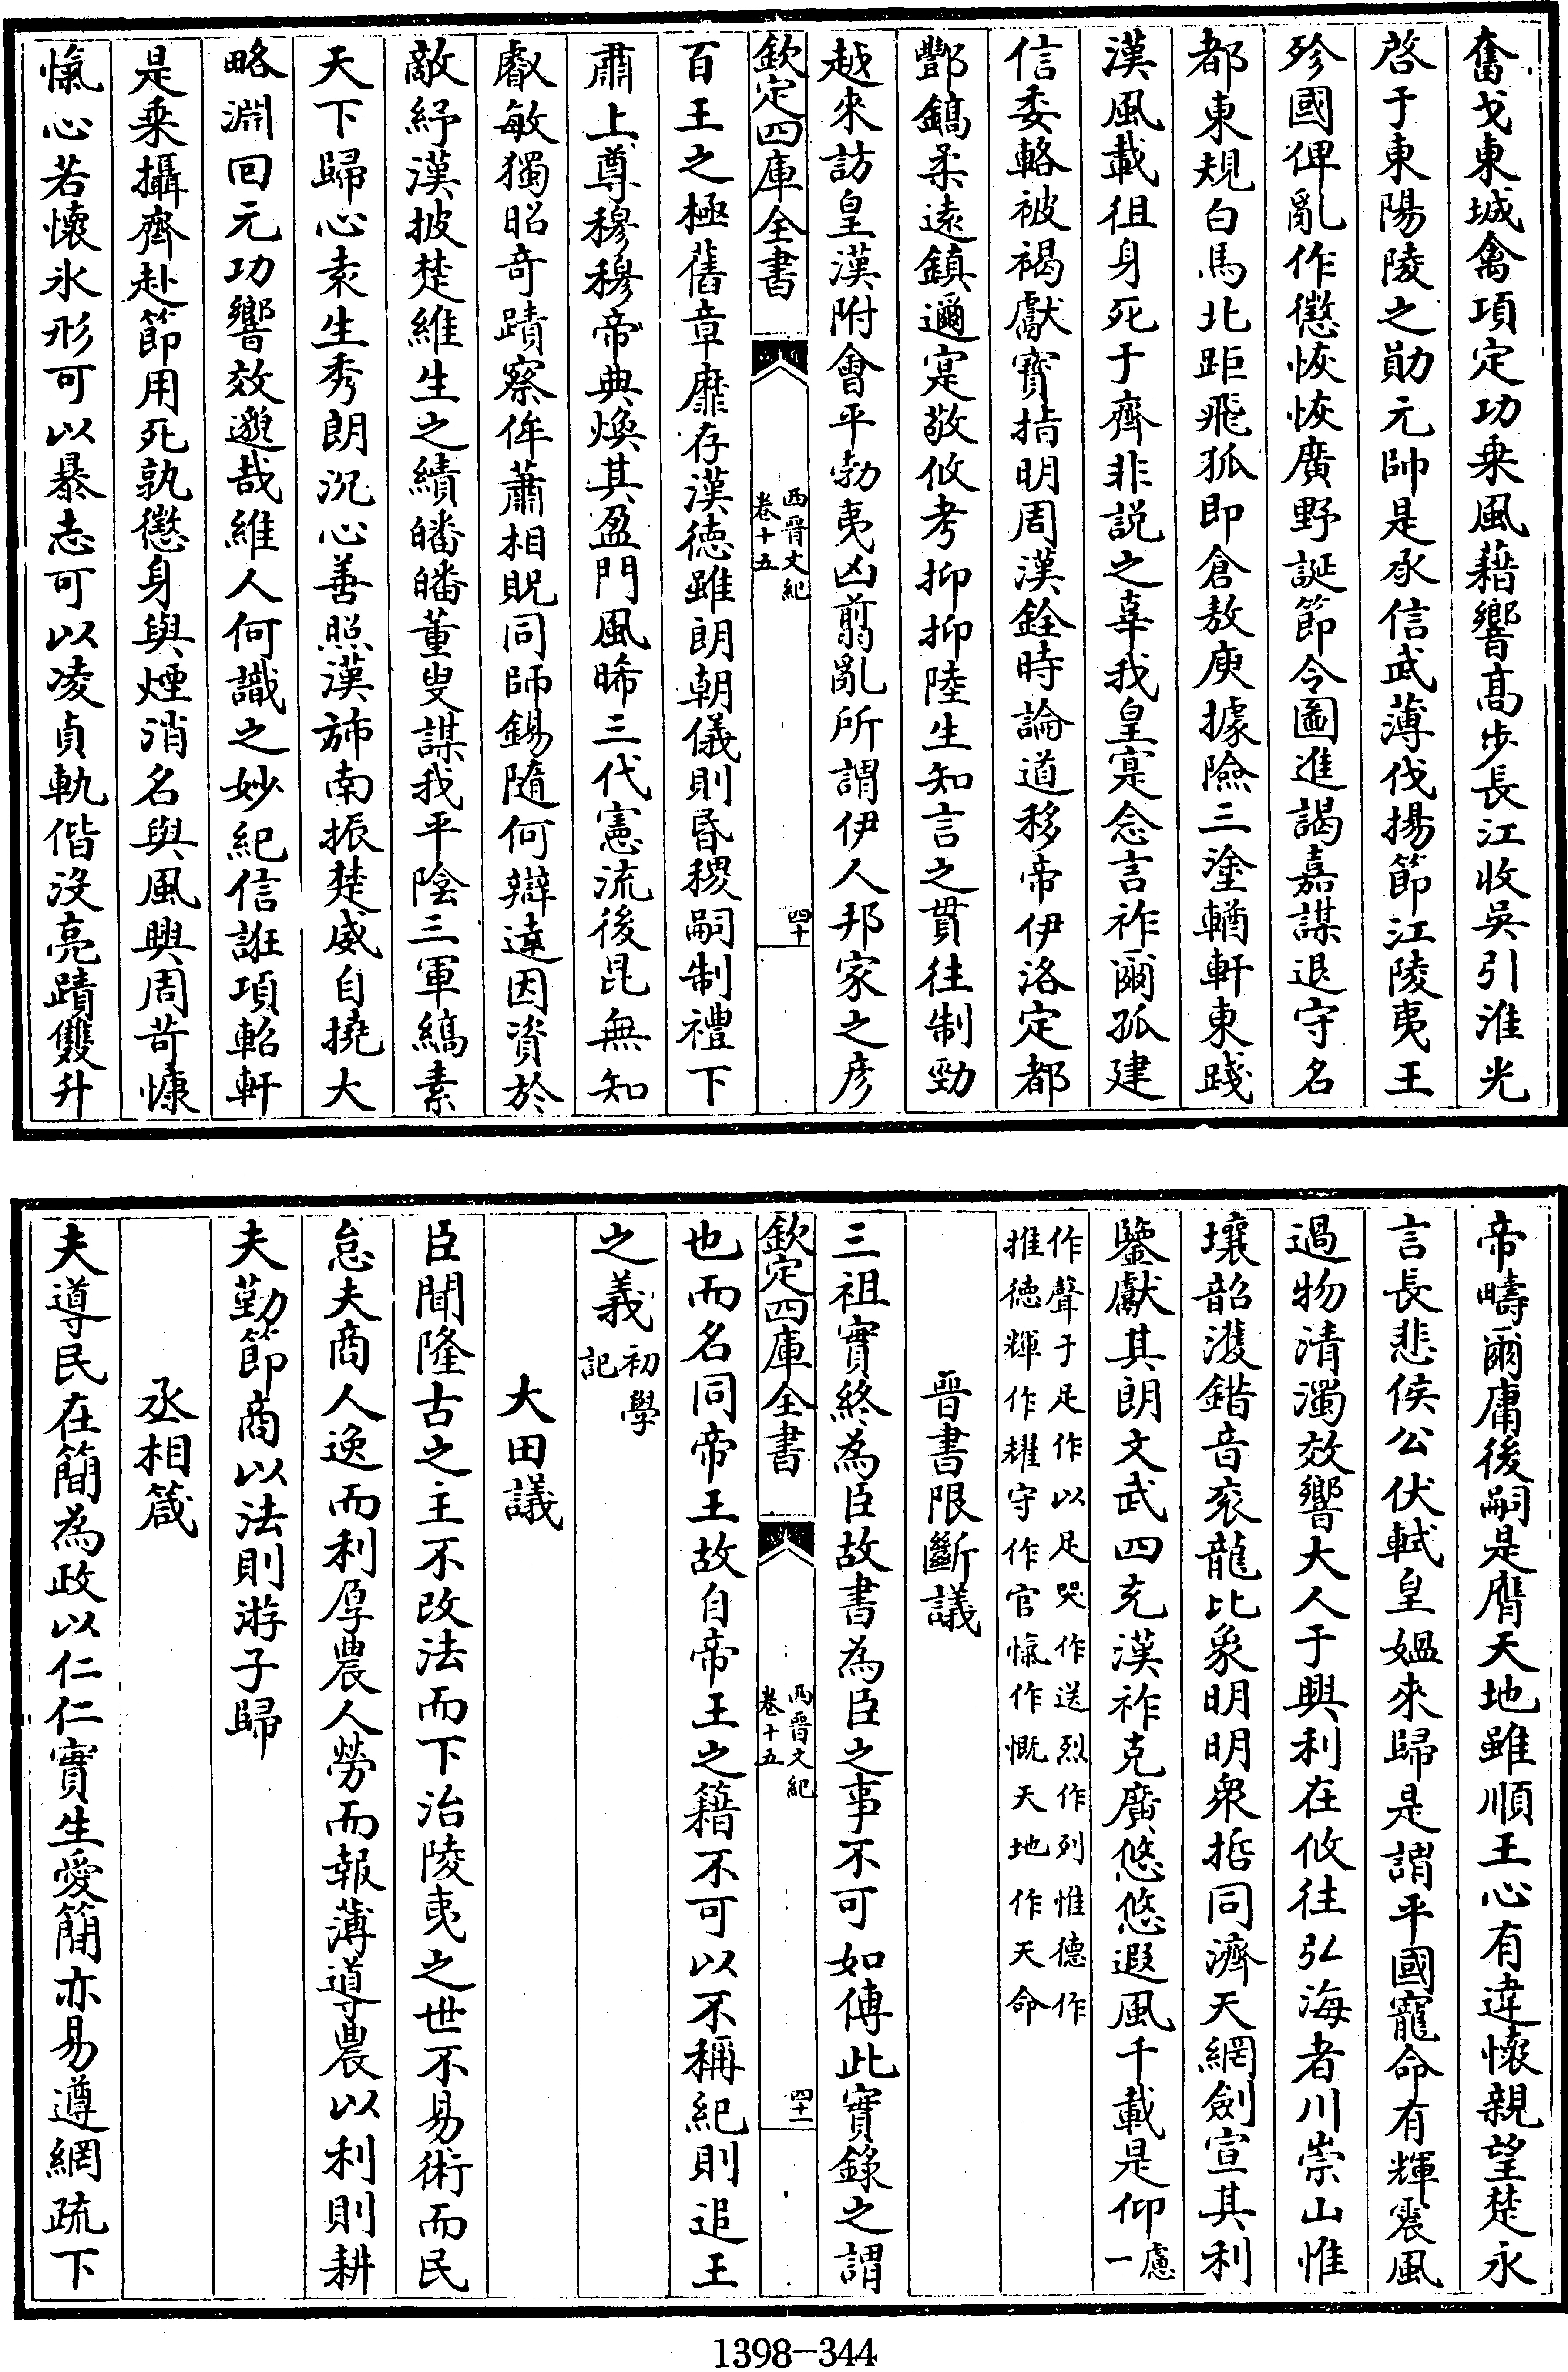 奮戈東城禽項定功乗風藉響髙步長江收吳引淮光
啓于東陽陵之勛元帥是承信武薄伐揚節江陵夷王
殄國俾亂作懲恢恢廣野誕節令圖進謁嘉謀退守名
都東規白馬北距飛狐即倉敖庾據險三塗輶軒東踐
漢風載徂身死于齊非説之辜我皇寔念言祚爾孤建
信委輅被褐獻寶指明周漢銓時論道移帝伊洛定都
酆鎬柔遠鎮邇寔敬攸考抑抑陸生知言之貫往制勁
越來訪皇漢附會平勃夷凶翦亂所謂伊人邦家之彦
欽定四庫全書
西晉文紀
卷十五
四十
百王之極舊章靡存漢徳雖朗朝儀則昏稷嗣制禮下
肅上尊穆穆帝典煥其盈門風晞三代憲流後昆無知
叡敏獨昭奇蹟察侔蕭相貺同師錫隨何辯逹因資於
敵紓漢披楚維生之績皤皤董叟謀我平陰三軍縞素
天下歸心袁生秀朗沉心善照漢斾南振楚威自撓大
略淵回元功響效邈哉維人何識之妙紀信誑項軺軒
是乗攝齊赴節用死孰懲身與煙消名與風興周苛慷
愾心若懷氷形可以暴志可以凌貞軌偕沒亮蹟雙升
帝疇爾庸後嗣是膺天地雖順王心有違懷親望楚永
言長悲侯公伏軾皇媼來歸是謂平國寵命有輝震風
過物清濁效響大人于興利在攸往弘海者川崇山惟
壤韶濩錯音衮龍比象明明衆哲同濟天網劍宣其利
鑒獻其朗文武四充漢祚克廣悠悠遐風千載是仰一慮
作聲于足作以足哭作送烈作列惟德作
推徳輝作耀守作官愾作慨天地作天命
晉書限斷議
三祖實終為臣故書為臣之事不可如傳此實錄之謂
欽定四庫全書
西晉文紀
卷十五
四十一
也而名同帝王故自帝王之籍不可以不稱紀則追王
之義初學
記
大田議
臣聞隆古之主不改法而下治陵夷之世不易術而民
怠夫商人逸而利厚農人勞而報薄導農以利則耕
夫勤節商以法則游子歸
丞相箴
夫導民在簡為政以仁仁實生愛簡亦易遵網疏下
1398-344